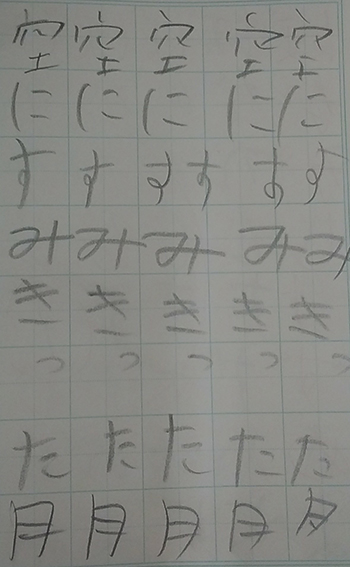 空にすみきった月
空にすみきった月
空にすすみきった月
空にすみきった月
空にすみきった月